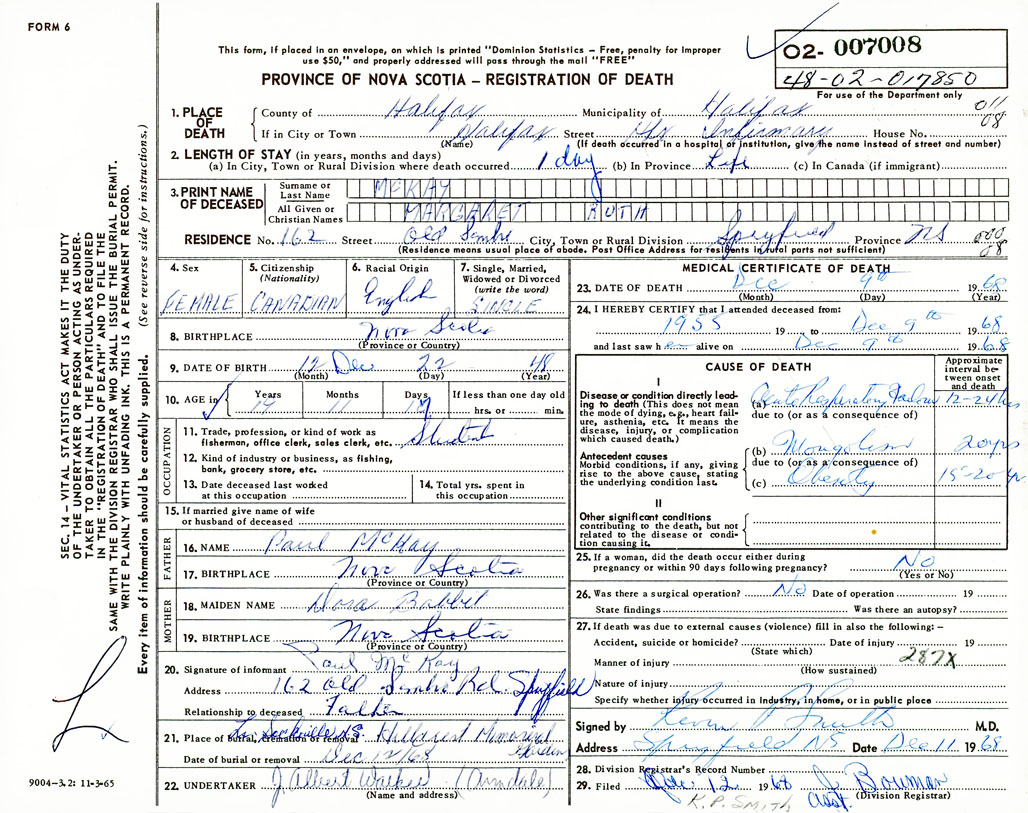 FORM 6
This form, if placed in an envelope, on which is printed "Dominion Statistics – Free, penalty for improper
use $50," and properly addressed will pass through the mail "FREE"
PROVINCE OF NOVA SCOTIA – REGISTRATION OF DEATH
02- 007008
48-02-017850
For use of the Department only
011
08
1. PLACE OF DEATH
County of Halifax Municipality of Halifax
If in City or Town Halifax Street Hfx Infirmary House No.
(Name) (If death occurred in a hospital or institution, give the name instead of street and number)
2. LENGTH OF STAY (in years, months and days)
(a) In City, Town or Rural Division where death occurred 1 day (b) In Province Life (c) In Canada (if immigrant)
3. PRINT NAME OF DECEASED
Surname or Last Name MCKAY
All Given or Christian Names MARGARET RUTH
RESIDENCE No. 162 Street Old Sambro City, Town or Rural Division Spryfield Province NS
000
08
(Residence means usual place of abode. Post Office Address for residents in rural parts not sufficient)
4. Sex FEMALE
5. Citizenship (Nationality) CANADIAN
6. Racial Origin English
7. Single, Married, Widowed or Divorced (write the word) SINGLE
8. BIRTHPLACE Nova Scotia
(Province or Country)
9. DATE OF BIRTH 12 Dec 22 48
(Month) (Day) (Year)
10. AGE in Years Months Days If less than one day old
19 11 hrs. or min.
OCCUPATION
11. Trade, profession, or kind of work as
fisherman, office clerk, sales clerk, etc. Student
12. Kind of industry or business, as fishing,
bank, grocery store, etc.
13. Date deceased last worked
at this occupation
14. Total yrs. spent in
this occupation
15. If married give name of wife
or husband of deceased
FATHER
16. NAME Paul McKay
17. BIRTHPLACE Nova Scotia
(Province or Country)
MOTHER
18. MAIDEN NAME Dora
19. BIRTHPLACE Nova Scotia
(Province or Country)
20. Signature of informant Paul McKay
Address 162 Old Sambro Rd. Spryfield
Relationship to deceased Father
21. Place of burial, cremation or removal Lr Sackville N.S. Hillcrest Memorial Gardens
Date of burial or removal Dec 12/68
22. UNDERTAKER J. Albert Walker (Armdale)
(Name and address)
MEDICAL CERTIFICATE OF DEATH
23. DATE OF DEATH Dec 9th 1968
(Month) (Day) (Year)
24. I HEREBY CERTIFY that I attended deceased from:
1955 19 to Dec 9th 1968
and last saw her alive on Dec 9th 1968
CAUSE OF DEATH
Approximate interval between onset and death
I
Disease or condition directly leading to death (This does not mean the mode of dying, e.g., heart failure, asthenia, etc. It means the disease, injury, or complication which caused death.)
(a) Acute Respiratory Failure 12-24 hrs
due to (or as a consequence of)
Antecedent causes
Morbid conditions, if any, giving rise to the above cause, stating the underlying condition last.
(b) Mongolism 20 yrs
due to (or as a consequence of)
(c) Obesity 15-20 yr.
II
Other significant conditions
contributing to the death, but not
related to the disease or condition causing it.
25. If a woman, did the death occur either during
pregnancy or within 90 days following pregnancy? No
(Yes or No)
26. Was there a surgical operation? No Date of operation 19
State findings Was there an autopsy?
27. If death was due to external causes (violence) fill in also the following: –
Accident, suicide or homicide? Date of injury 19
(State which)
287X
Manner of injury
(How sustained)
Nature of injury
Specify whether injury occurred in industry, in home, or in public place
Signed by Smith M.D.
Address Spryfield NS Date Dec 11 1968
28. Division Registrar's Record Number
29. Filed Dec 12 1968 J. Bowman
Asst. (Division Registrar)
K.P. SMITH
SEC. 14 – VITAL STATISTICS ACT MAKES IT THE DUTY
OF THE UNDERTAKER OR PERSON ACTING AS UNDER-
TAKER TO OBTAIN ALL THE PARTICULARS REQUIRED
IN THE "REGISTRATION OF DEATH" AND TO FILE THE
SAME WITH THE DIVISION REGISTRAR WHO SHALL ISSUE THE BURIAL PERMIT.
WRITE PLAINLY WITH UNFADING INK. THIS IS A PERMANENT RECORD.
Every item of information should be carefully supplied. (See reverse side for instructions.)
9004-3.2: 11-3-65